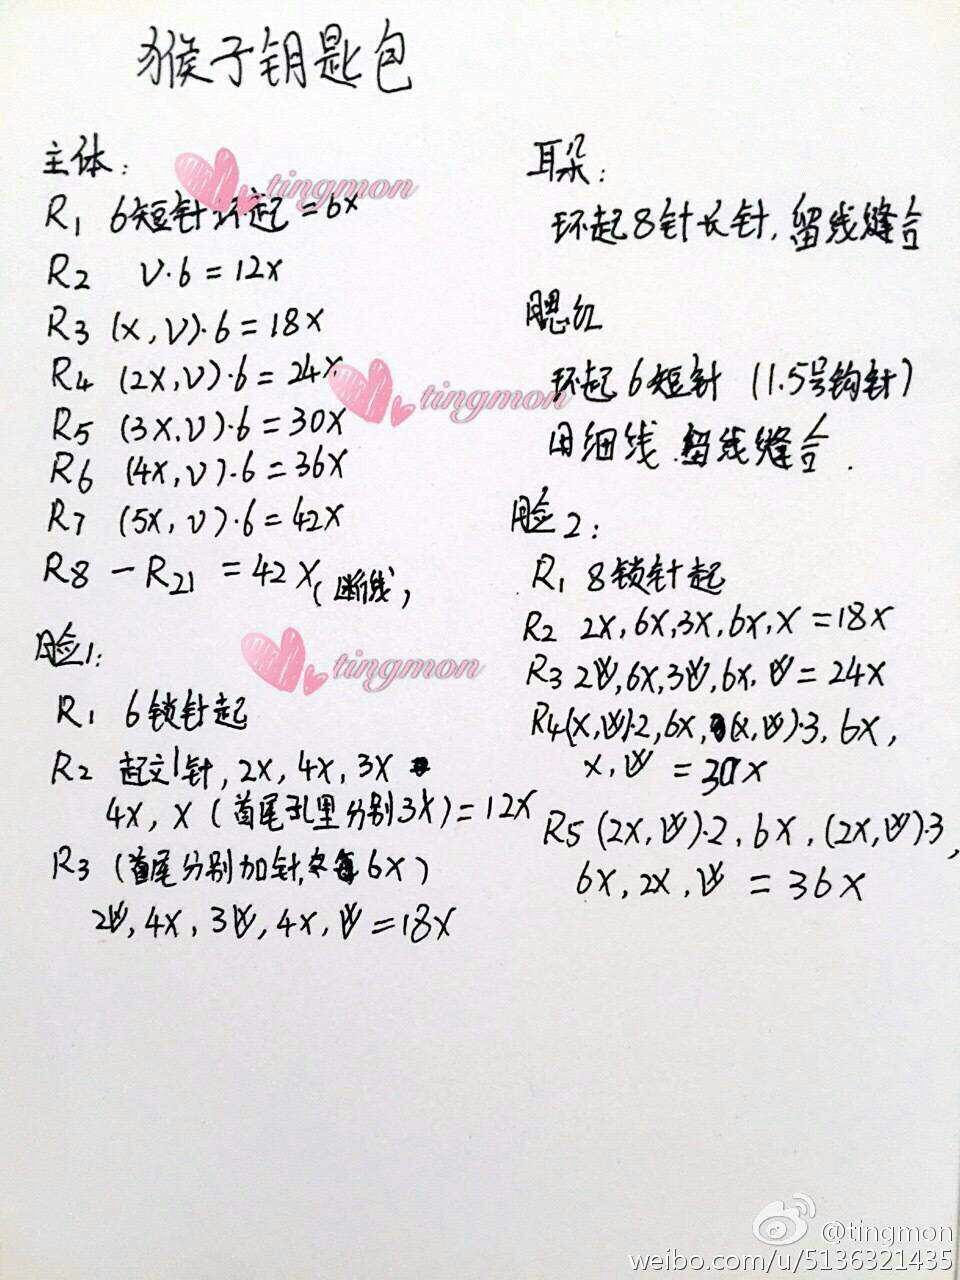 猴子钥匙包
主体:
tingmon
R1 6短针环起=6X
R2 V·6=12X
R3 (X,V)·6=18X
R4 (2X,V)·6=24X
tingmon
R5 (3X,V)·6=30X
R6 (4X,V)·6=36X
R7 (5X,V)·6=42X
R8 — R21 =42X(断线)
脸1:
tingmon
R1 6锁针起
R2 起立1针,2X,4X,3X
4X,X(首尾孔里分别3X)=12X
R3 (首尾分别加针, 6X)
2V,4X,3V,4X,V=18X
耳朵:
环起8针长针,留线缝合
腮红
环起6短针 (1.5号钩针)
用细线 留线缝合.
脸2:
R1 8锁针起
R2 2X,6X,3X,6X,X=18X
R3 2V,6X,3V,6X,V=24X
R4(X,V)·2,6X,(X,V)·3,6X,
X,V=30X
R5 (2X,V)·2,6X,(2X,V)·3,
6X,2X,V=36X
@tingmon
weibo.com/u/5136321435